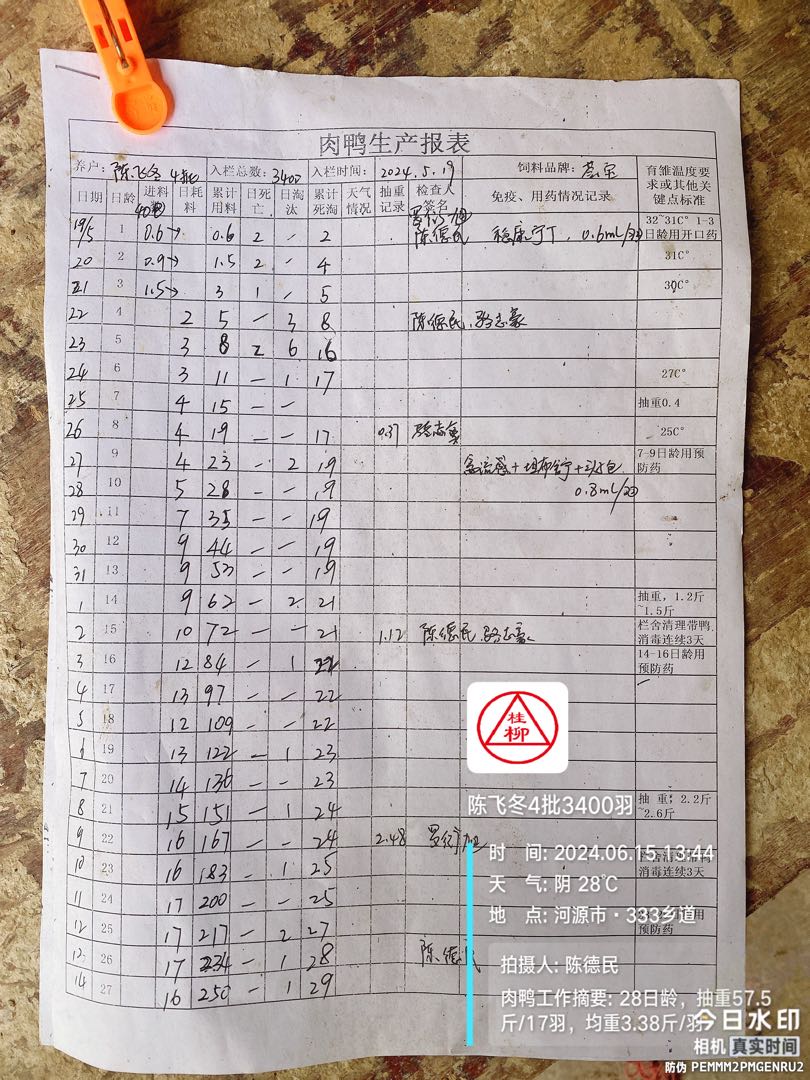 肉鸭生产报表
养户: 陈飞冬 4批 入栏总数: 3400 入栏时间: 2024.5.19 饲料品牌: 育雏温度要求或其他关键点标准
日期 日龄 进料 日耗料 累计用料 日死亡 日淘汰 累计死淘 天气情况 抽重记录 检查人签名 免疫、用药情况记录
19/5 1 0.6→ 0.6 2 - 2 陈德民 0.6mL/羽 32~31C° 1-3日龄用开口药
20 2 0.9→ 1.5 2 - 4 31C°
21 3 1.5→ 3 1 - 5 30C°
22 4 2 5 - 3 8 陈德民、骆志豪
23 5 3 8 2 6 16
24 6 3 11 - 1 17 27C°
25 7 4 15 - - 抽重0.4
26 8 4 19 - - 17 0.37 骆志豪 25C°
27 9 4 23 - 2 19 7-9日龄用预防药
28 10 5 28 - - 19 0.8mL/羽
29 11 7 35 - - 19
30 12 9 44 - - 19
31 13 9 53 - - 19
1 14 9 62 - 2 21 抽重，1.2斤~1.5斤
2 15 10 72 - - 21 1.12 陈德民 骆志豪 栏舍清理带鸭消毒连续3天
3 16 12 84 - 1 22 14-16日龄用预防药
4 17 13 97 - - 22
5 18 12 109 - - 22
6 19 13 122 - 1 23
7 20 14 136 - - 23
8 21 15 151 - 1 24 抽 重，2.2斤~2.6斤
9 22 16 167 - - 24 2.48
10 23 16 183 - 1 25 消毒连续3天
11 24 17 200 - - 25
12 25 17 217 - 2 27 预防药
13 26 17 234 - 1 28 陈德民
14 27 16 250 - 1 29
桂柳
陈飞冬4批3400羽
时 间: 2024.06.15 13:44
天 气: 阴 28℃
地 点: 河源市·333乡道
拍摄人: 陈德民
肉鸭工作摘要: 28日龄，抽重57.5
斤/17羽，均重3.38斤/羽
今日水印
相机 真实时间
防伪 PEMMM2PMGENRU2